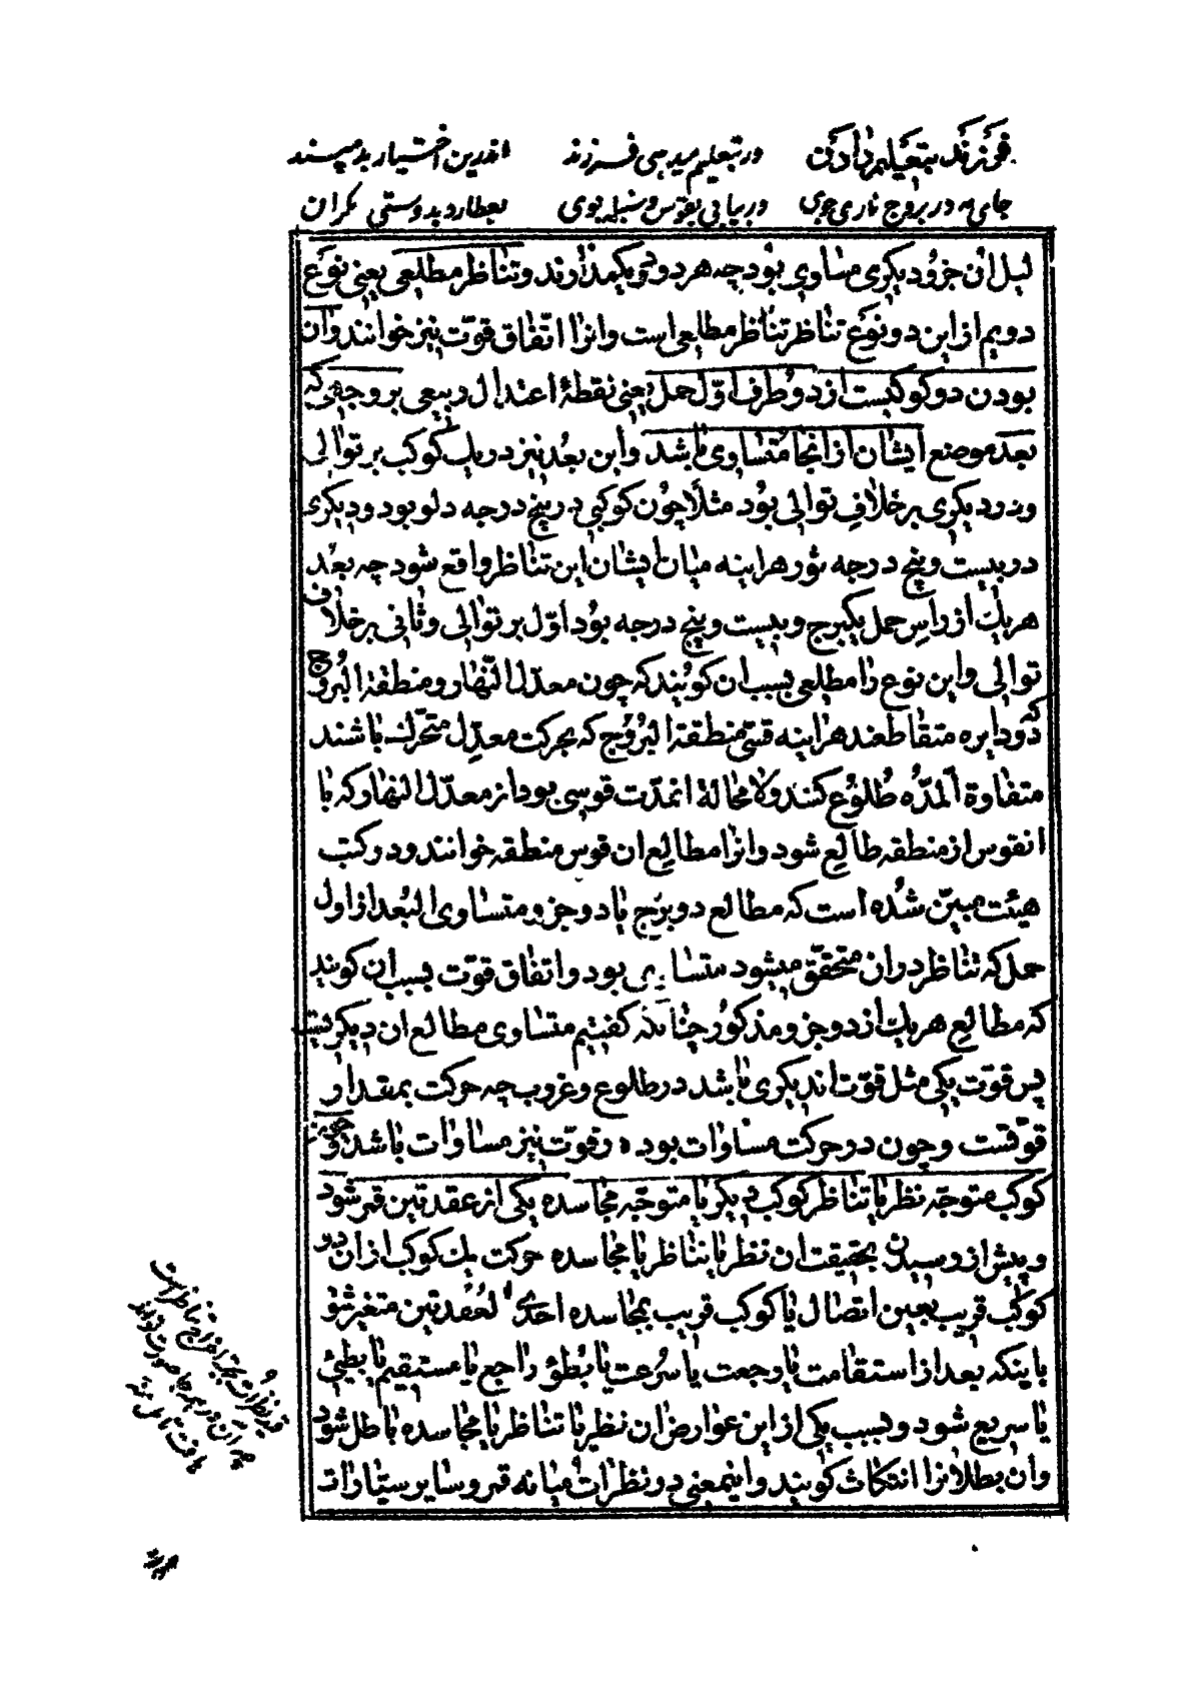 فرزند بتعلیم دادن ور تبعلیم میدهی فرزند اندرین اختیار بد مپسند
جای مه در بروج ناری جوی ور نیابی بقوس و سنبله بوی بعطارد بدوستی نکران
لیل ان جزو دیکری مساوی بود چه هر دو بر یکمدارند و تناظر مطلعی یعنی نوع
دویم از این دو نوع تناظر تناظر مطالعی است و انرا اتّفاق قوّت نیز خوانند و ان
بودن دو کوکبست از دو طرف اوّل حمل یعنی نقطهٔ اعتدال ربیعی بر وجهی که
بعد موضع ایشان از انجا متساوی باشد و این بعد نیز در یك کوکب بر توالی
و در دیکری بر خلاف توالی بود مثلا چون کوکبی در پنج درجه دلو بود و دیکری
در بیست و پنج درجه ثور هراینه میان ایشان این تناظر واقع شود چه بعد
هر یك از راس حمل یکبرج و بیست و پنج درجه بود اوّل بر توالی و ثانی بر خلاف
توالی و این نوع را مطلعی بسبب ان کویند که چون معدّل النّهار و منطقة البروج
که دو دایره متقاطعند هراینه قسیّ منطقة البروج که بحرکت معدّل متحرّك باشند
متفاوة المدّه طلوع کنند و لا محاله انمدّت قوسی بود از معدّل النهار که با
انقوس از منطقه طالع شود و انرا مطالع ان قوس منطقه خوانند و در کتب
هیئت مبیّن شده است که مطالع دو برج یا دو جزو متساوی البعد از اول
حمل که تناظر در ان متحقّق میشود متساوی بود و اتفاق قوّت بسبب ان کویند
که مطالع هر یك از دو جزو مذکور چنانکه کفتیم متساوی مطالع ان دیکریست
پس قوّت یکی مثل قوّت اندیکری باشد در طلوع و غروب چه حرکت بمقدار
قوّتست و چون در حرکت مساوات بود در قوت نیز مساوات باشد و چون
کوکب متوجّه نظر یا تناظر کوکب دیکر یا متوجّه مجاسده یکی از عقدتین قمر شود
و پیش از رسیدن بحقیقت ان نظر یا تناظر یا مجاسده حرکت یك کوکب از ان دو
کوکب قریب بعین اتصال یا کوکب قریب بمجاسده احدی العقدتین متغیر شود
باینکه بعد از استقامت یا رجعت یا سرعت یا بطؤ راجع یا مستقیم یا بطیئ
یا سریع شود و بسبب یکی از این عوارض ان نظر یا تناظر یا مجاسده باطل شود
و ان بطلانرا انتکاث کویند و اینمعنی در نظرات میانه قمر و سایر سیّارات